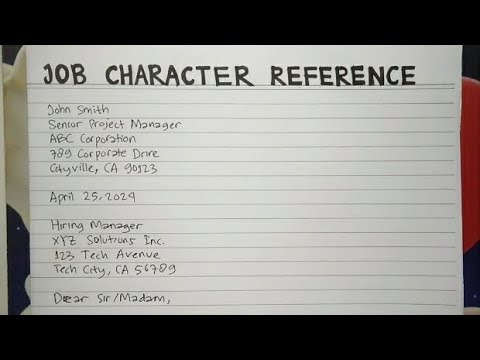 JOB CHARACTER REFERENCE
John Smith
Senior Project Manager
ABC Corporation
789 Corporate Drive
Cityville, CA 90123
April 25, 2024
Hiring Manager
XYZ Solutions Inc.
123 Tech Avenue
Tech City, CA 56789
Dear Sir/Madam,